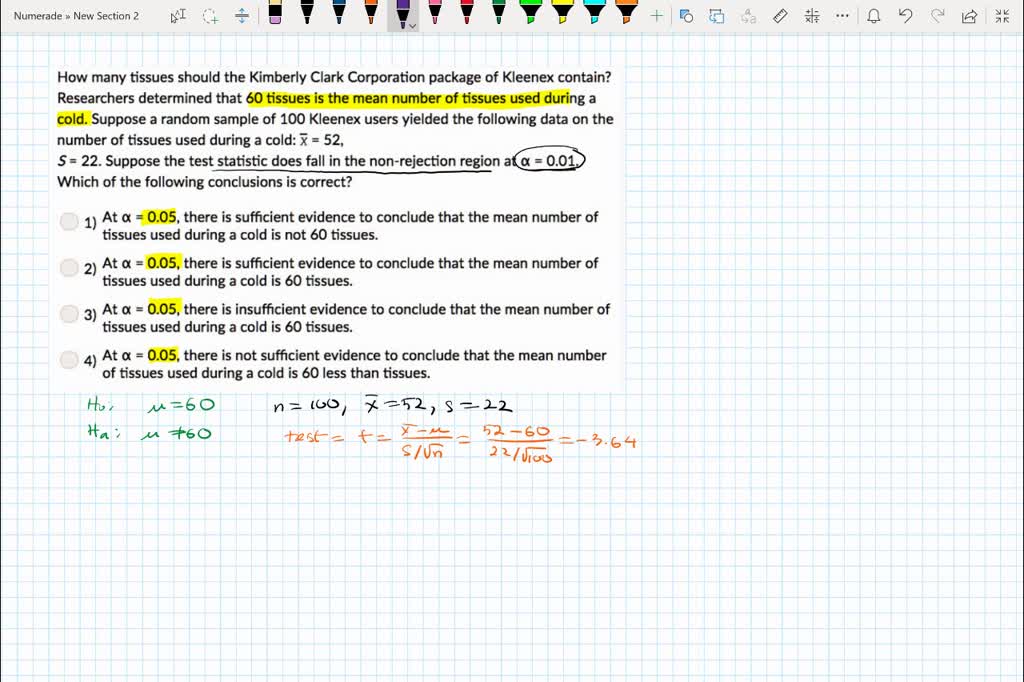 Numerade » New Section 2
How many tissues should the Kimberly Clark Corporation package of Kleenex contain?
Researchers determined that 60 tissues is the mean number of tissues used during a
cold. Suppose a random sample of 100 Kleenex users yielded the following data on the
number of tissues used during a cold: x̅ = 52,
S = 22. Suppose the test statistic does fall in the non-rejection region at α = 0.01.
Which of the following conclusions is correct?
1) At α = 0.05, there is sufficient evidence to conclude that the mean number of
tissues used during a cold is not 60 tissues.
2) At α = 0.05, there is sufficient evidence to conclude that the mean number of
tissues used during a cold is 60 tissues.
3) At α = 0.05, there is insufficient evidence to conclude that the mean number of
tissues used during a cold is 60 tissues.
4) At α = 0.05, there is not sufficient evidence to conclude that the mean number
of tissues used during a cold is 60 less than tissues.
H₀: μ = 60 n = 100, x̅ = 52, s = 22
Ha: μ ≠ 60 test = t = (x̅ - μ)/(s/√n) = (52 - 60)/(22/√100) = -3.64